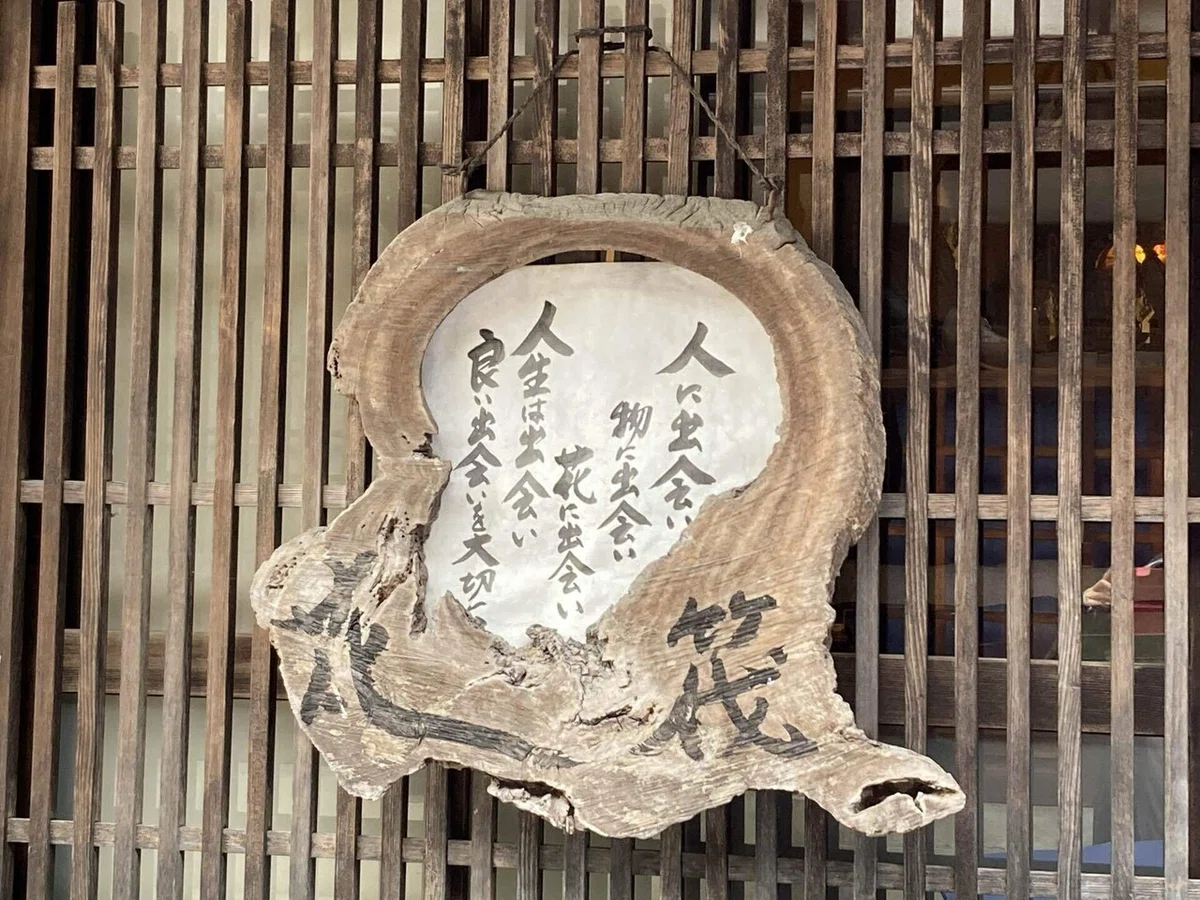 人に出会い
物に出会い
花に出会い
人生は出会い
良い出会いを大切に
花筏